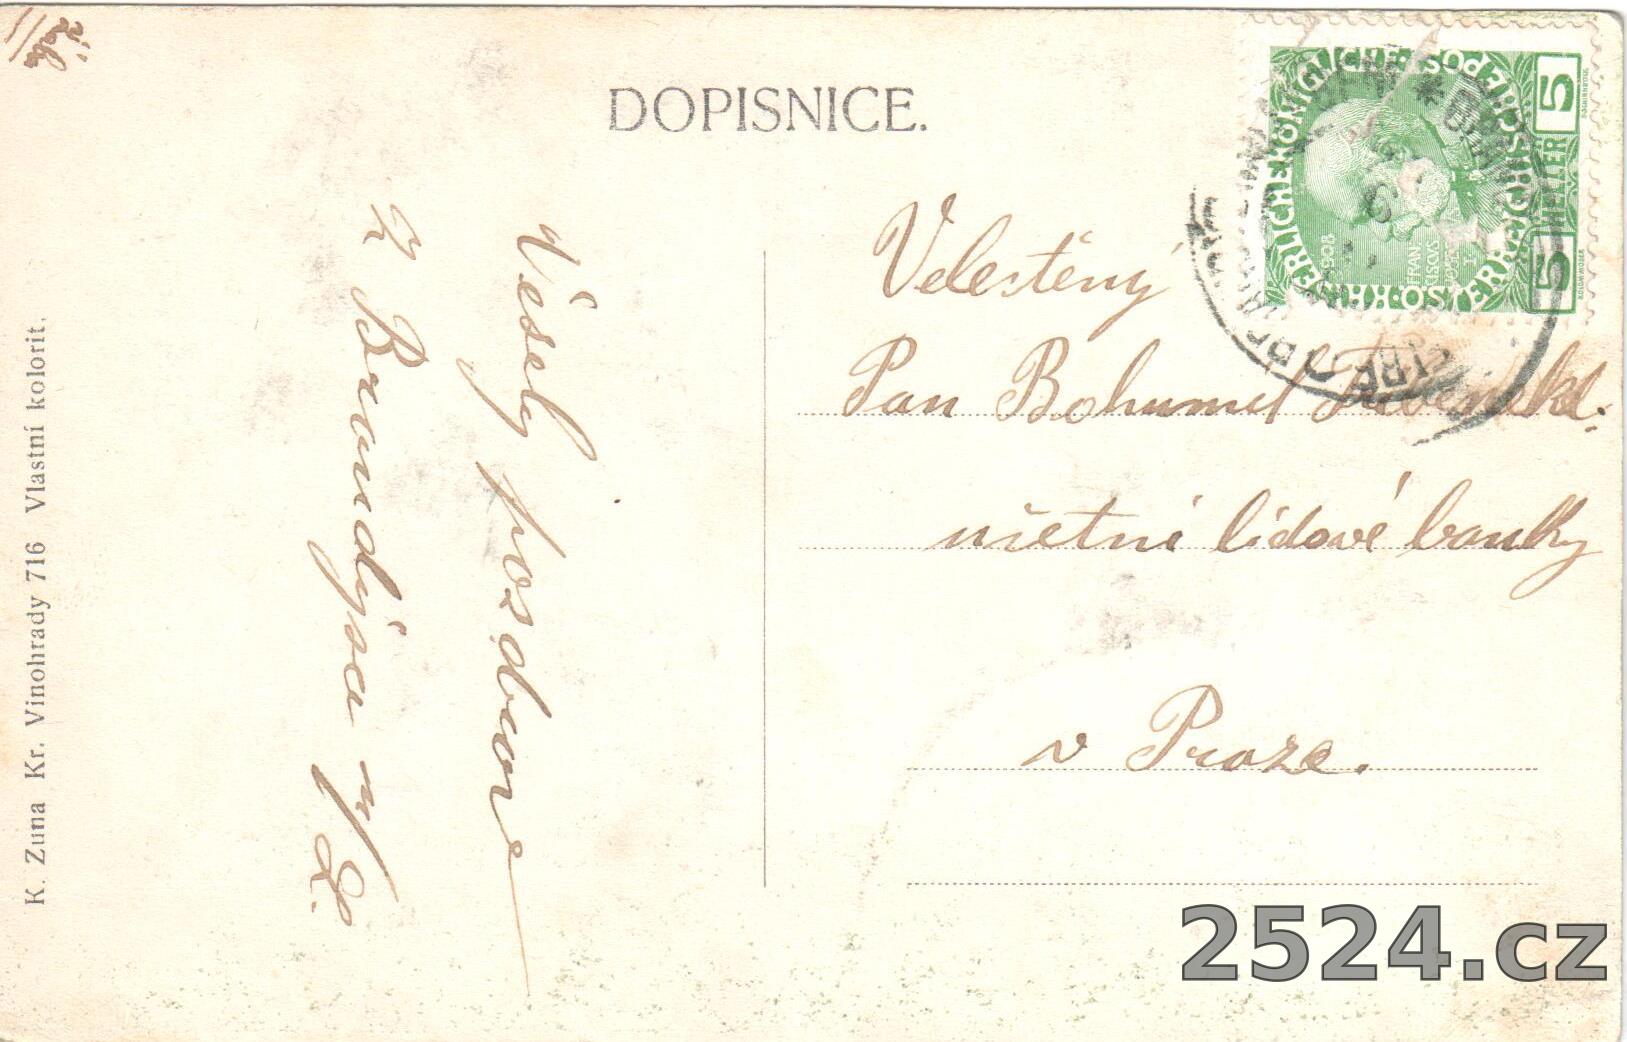 DOPISNICE.
Velectěný
Pan Bohumil
účetní lidové banky
v Praze.
Veselý pozdrav
Z Brandýsa n/L.
K. Zuna Kr. Vinohrady 716 Vlastní kolorit.
K.K. ÖSTERREICHISCHE POST
KAISERLICHE KÖNIGLICHE
1908
FRAN
CISCVS
IOSEF I
5 HELLER 5
2524.cz